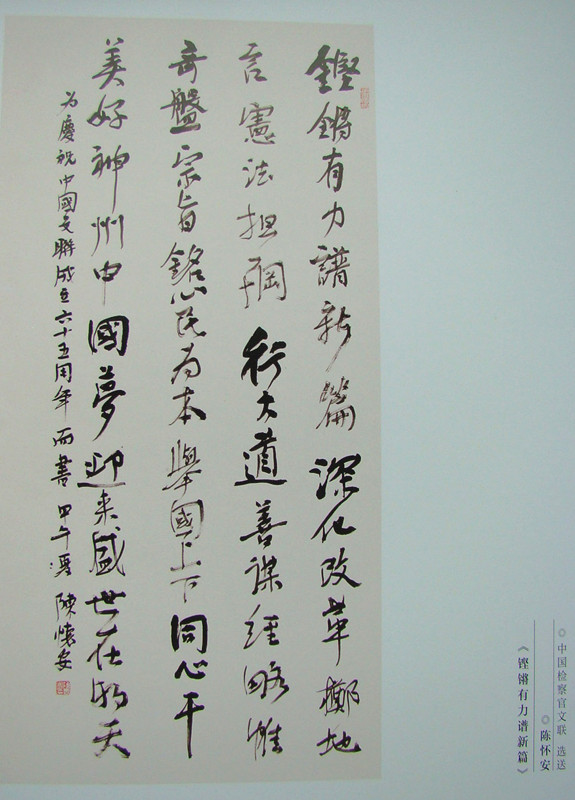 鏗鏘有力譜新篇深化改革擲地
言憲法担綱行大道善謀經略
奇盤宗旨銘心民为本舉國上下同心干
美好神州中國夢迎来盛世在明天
为慶祝中國文聯成立六十五周年而書 甲午夏 陳懷安
◎中国检察官文联 选送
◎陈怀安
《铿锵有力谱新篇》